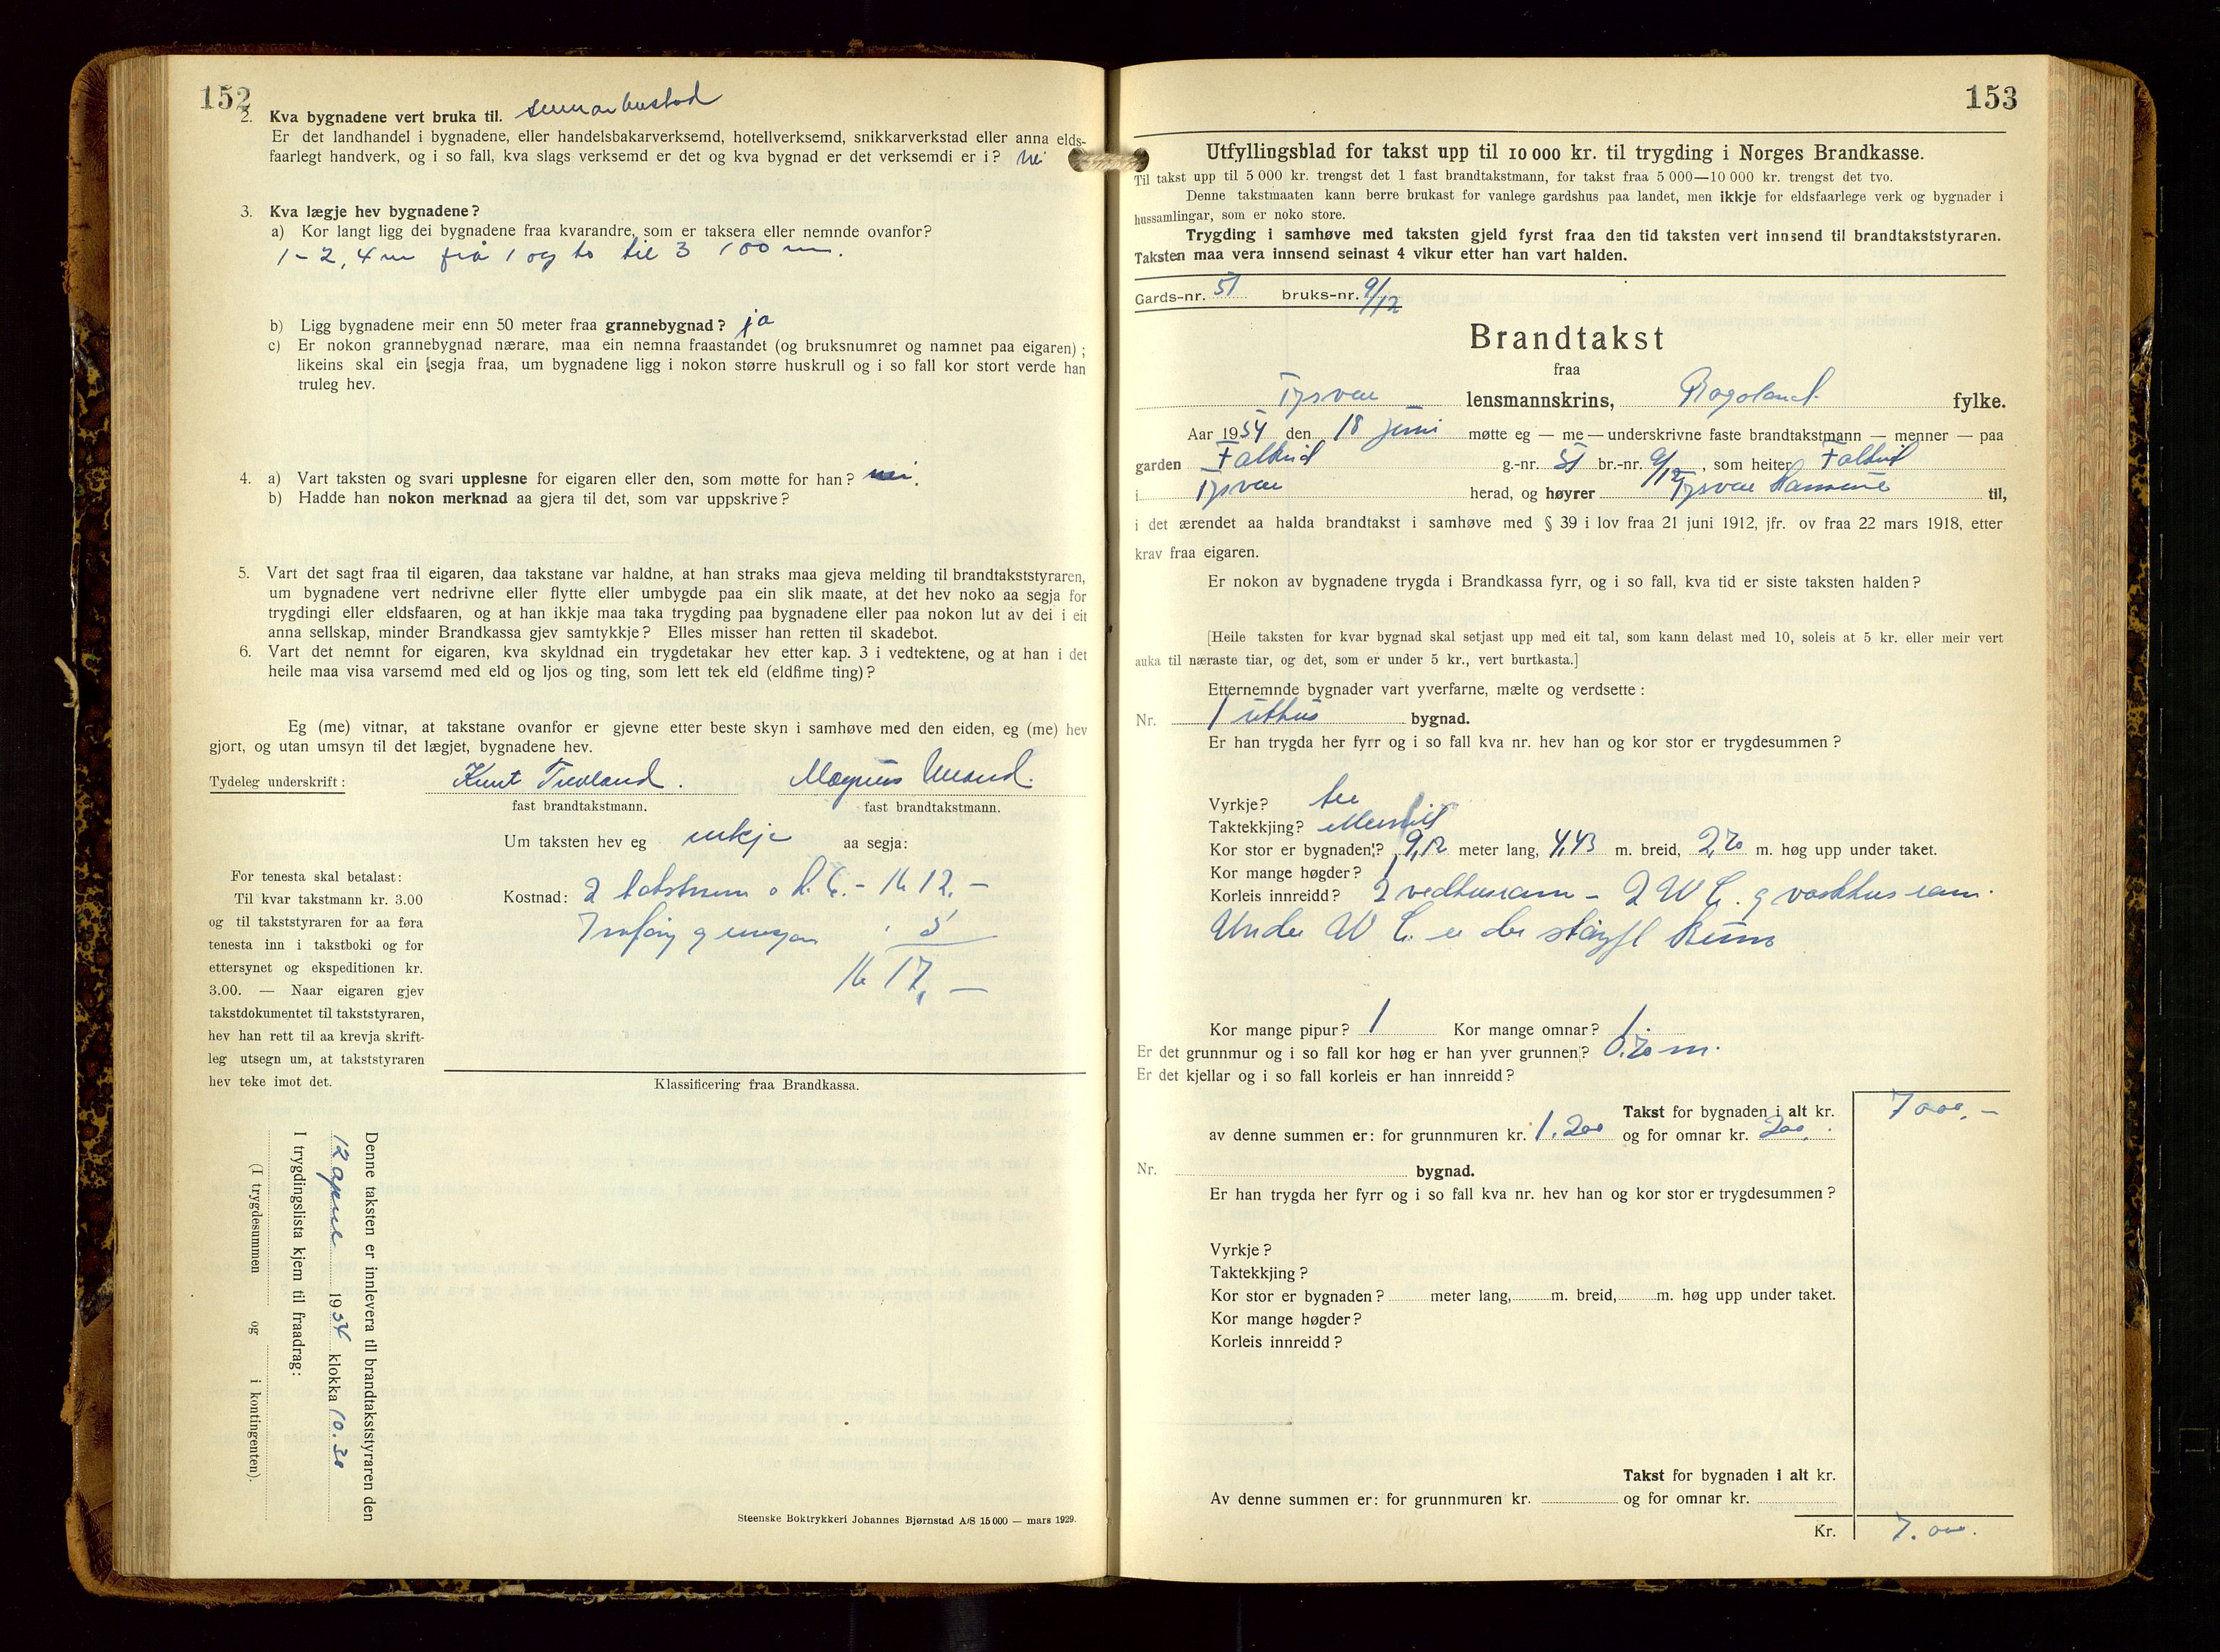 152
2. Kva bygnadene vert bruka til.
Er det landhandel i bygnadene, eller handelsbakarverksemd, hotellverksemd, snikkarverkstad eller anna elds-
faarlegt handverk, og i so fall, kva slags verksemd er det og kva bygnad er det verksemdi er i? nei
3. Kva lægje hev bygnadene?
a) Kor langt ligg dei bygnadene fraa kvarandre, som er taksera eller nemnde ovanfor?
1-2, 4 m frå 1 og to til 3 100 m.
b) Ligg bygnadene meir enn 50 meter fraa grannebygnad? ja
c) Er nokon grannebygnad nærare, maa ein nemna fraastandet (og bruksnumret og namnet paa eigaren);
likeins skal ein segja fraa, um bygnadene ligg i nokon større huskrull og i so fall kor stort verde han
truleg hev.
4. a) Vart taksten og svari upplesne for eigaren eller den, som møtte for han? nei.
b) Hadde han nokon merknad aa gjera til det, som var uppskrive?
5. Vart det sagt fraa til eigaren, daa takstane var haldne, at han straks maa gjeva melding til brandtakststyraren,
um bygnadene vert nedrivne eller flytte eller umbygde paa ein slik maate, at det hev noko aa segja for
trygdingi eller eldsfaaren, og at han ikkje maa taka trygding paa bygnadene eller paa nokon lut av dei i eit
anna sellskap, minder Brandkassa gjev samtykkje? Elles misser han retten til skadebot.
6. Vart det nemnt for eigaren, kva skyldnad ein trygdetakar hev etter kap. 3 i vedtektene, og at han i det
heile maa visa varsemd med eld og ljos og ting, som lett tek eld (eldfime ting)?
Eg (me) vitnar, at takstane ovanfor er gjevne etter beste skyn i samhøve med den eiden, eg (me) hev
gjort, og utan umsyn til det lægjet, bygnadene hev.
Tydeleg underskrift: Knut Tveoland. Magnus
fast brandtakstmann. fast brandtakstmann.
Um taksten hev eg inkje aa segja:
Kostnad: 2 - kr 12,-
5
kr 17,-
For tenesta skal betalast:
Til kvar takstmann kr. 3.00
og til takststyraren for aa føra
tenesta inn i takstboki og for
ettersynet og ekspeditionen kr.
3.00. — Naar eigaren gjev
takstdokumentet til takststyraren,
hev han rett til aa krevja skrift-
leg utsegn um, at takststyraren
hev teke imot det.
Klassificering fraa Brandkassa.
Denne taksten er innlevera til brandtakststyraren den
12 1954 klokka 10.30
I trygdingslista kjem til fraadrag:
(I trygdesummen og i kontingenten).
Steenske Boktrykkeri Johannes Bjørnstad A/S 15000 — mars 1929.
153
Utfyllingsblad for takst upp til 10 000 kr. til trygding i Norges Brandkasse.
Til takst upp til 5 000 kr. trengst det 1 fast brandtakstmann, for takst fraa 5 000—10 000 kr. trengst det tvo.
Denne takstmaaten kann berre brukast for vanlege gardshus paa landet, men ikkje for eldsfaarlege verk og bygnader i
hussamlingar, som er noko store.
Trygding i samhøve med taksten gjeld fyrst fraa den tid taksten vert innsend til brandtakststyraren.
Taksten maa vera innsend seinast 4 vikur etter han vart halden.
Gards-nr. 51 bruks-nr. 9/12
Brandtakst
fraa
Tysvær lensmannskrins, Rogaland. fylke.
Aar 1954 den 18 juni møtte eg — me — underskrivne faste brandtakstmann — menner — paa
garden Falkeid g.-nr. 51 br.-nr. 9/12, som heiter Falkeid
i Tysvær herad, og høyrer Tysvær til,
i det ærendet aa halda brandtakst i samhøve med § 39 i lov fraa 21 juni 1912, jfr. ov fraa 22 mars 1918, etter
krav fraa eigaren.
Er nokon av bygnadene trygda i Brandkassa fyrr, og i so fall, kva tid er siste taksten halden?
[Heile taksten for kvar bygnad skal setjast upp med eit tal, som kann delast med 10, soleis at 5 kr. eller meir vert
auka til næraste tiar, og det, som er under 5 kr., vert burtkasta.]
Etternemnde bygnader vart yverfarne, mælte og verdsette:
Nr. 1 uthus bygnad.
Er han trygda her fyrr og i so fall kva nr. hev han og kor stor er trygdesummen?
Vyrkje? tre
Taktekkjing?
Kor stor er bygnaden? 9,12 meter lang, 4,43 m. breid, 2,20 m. høg upp under taket.
Kor mange høgder? 1
Korleis innreidd? 2 vedhusrom - 2 W C. og vaskhus rom.
Under W C. er der støypt
Kor mange pipur? 1 Kor mange omnar? 1.
Er det grunnmur og i so fall kor høg er han yver grunnen? 0.20 m.
Er det kjellar og i so fall korleis er han innreidd?
Takst for bygnaden i alt kr. 7000,-
av denne summen er: for grunnmuren kr. 1.200 og for omnar kr. 200.
Nr. bygnad.
Er han trygda her fyrr og i so fall kva nr. hev han og kor stor er trygdesummen?
Vyrkje?
Taktekkjing?
Kor stor er bygnaden? meter lang, m. breid, m. høg upp under taket.
Kor mange høgder?
Korleis innreidd?
Takst for bygnaden i alt kr.
Av denne summen er: for grunnmuren kr. og for omnar kr.
Kr. 7.000.